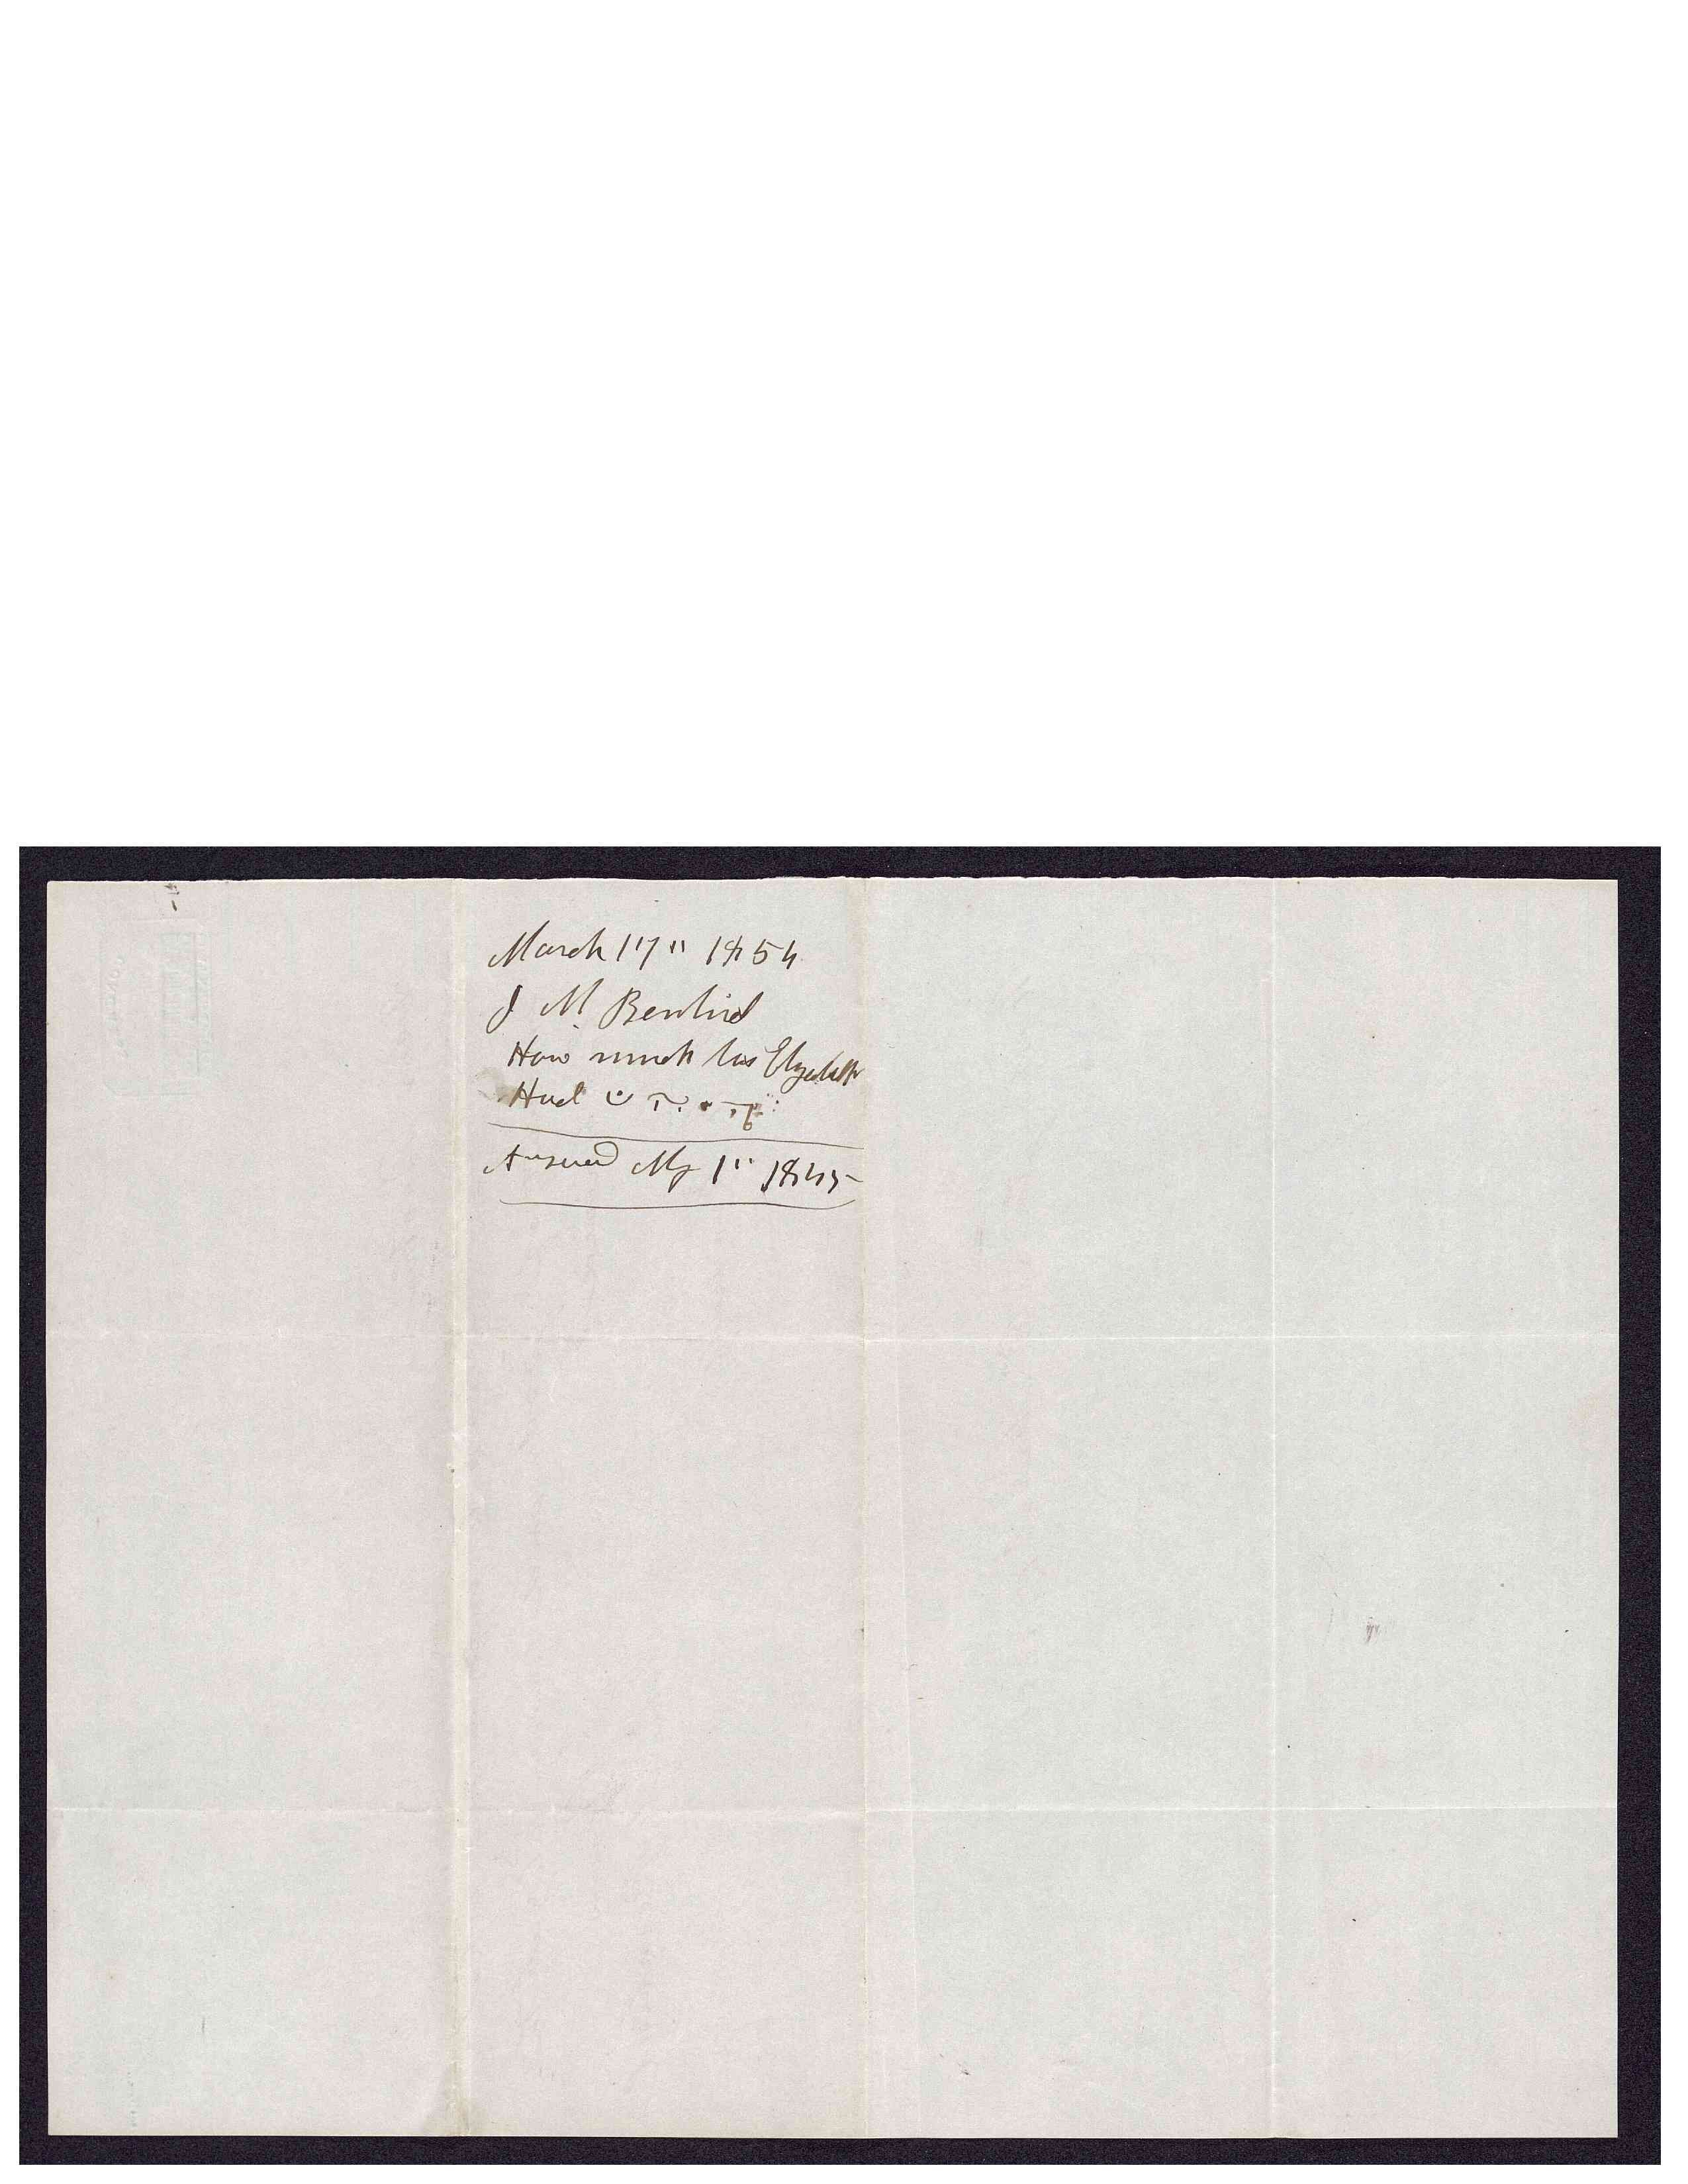 March 17" 1854
J M Benbird
How much has Elyzabeth
Had
Answered My 1" 1845